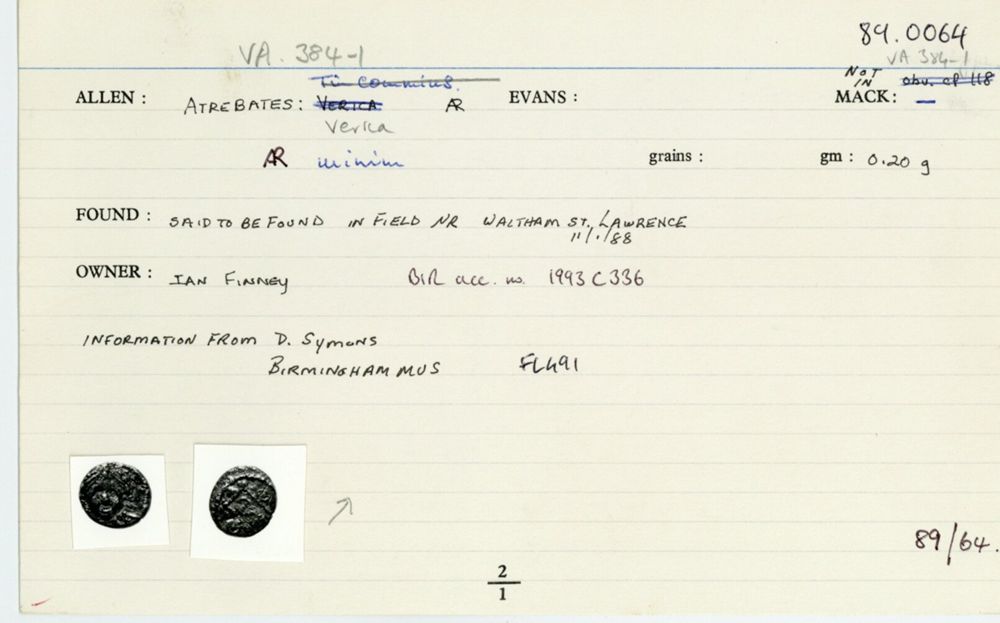 89.0064
VA. 384-1
VA 384-1
Tin Commius.
NOT IN
obv. cf 118
ALLEN : ATREBATES : VERICA AR EVANS : MACK: —
Verica
AR minim grains : gm : 0.20 g
FOUND : SAID TO BE FOUND IN FIELD NR WALTHAM ST. LAWRENCE
11/1/88
OWNER : IAN FINNEY BIR acc. no. 1993 C 336
INFORMATION FROM D. Symons
BIRMINGHAM MUS
89/64.
2
1